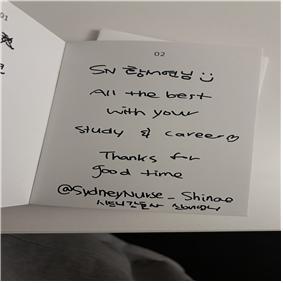 01
02
SN 님 :)
All the best
with your
study & career ♡
Thanks for
good time
@SydneyNurse_Shinae
시드니간호사